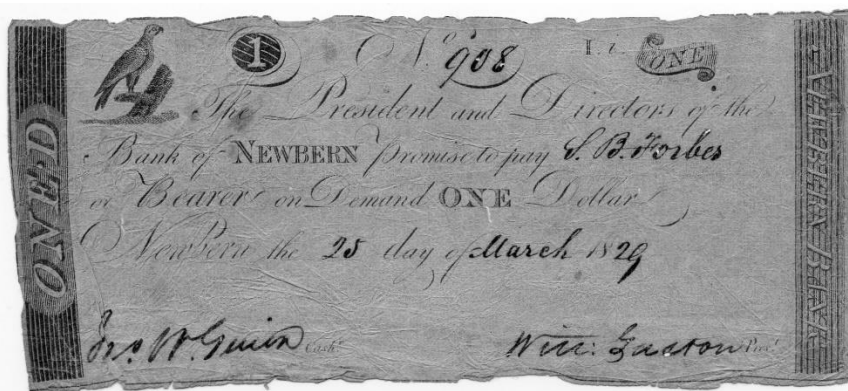 1 No. 908 ONE
The President and Directors of the
Bank of NEWBERN promise to pay S. B. Forbes
or Bearer on Demand ONE Dollar
Newbern the 25 day of March 1829
Jno. W. Guion Cashr. Will: Gaston Prest.
ONE D
NEWBERN